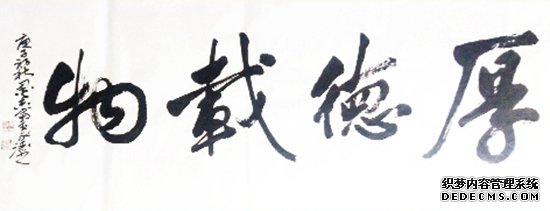 厚德載物
织梦内容管理系统
DEDECMS.COM